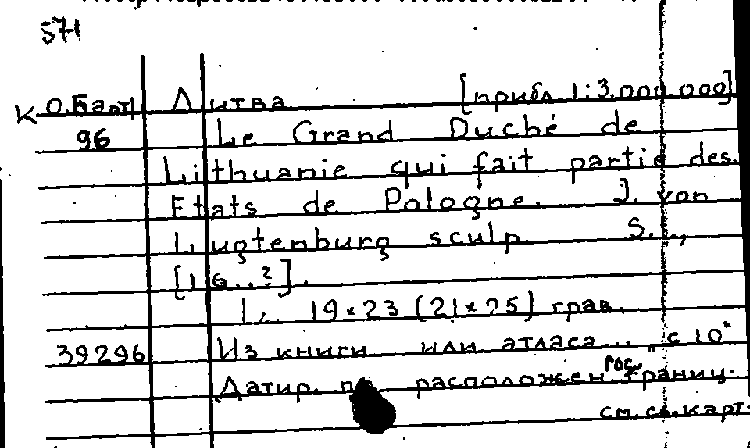 571
К О.Балт Литва [прибл 1:3.000.000]
96 Le Grand Duché de
Lithuanie qui fait partie des
Etats de Pologne. J. von
Lugtenburg sculp. S. l.,
[16..?].
1 л. 19×23 (21×25) грав.
39296 Из книги или атласа... "с 10"
Датир. по расположен гос. границ.
см. св. карт.